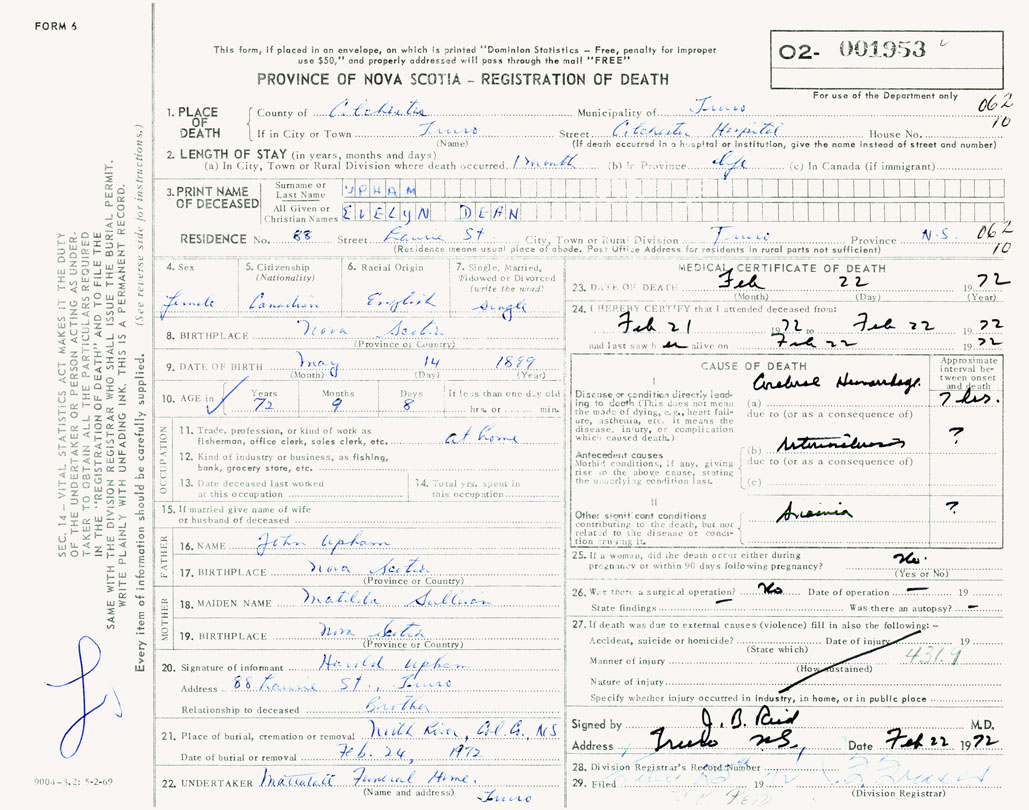 FORM 6
This form, if placed in an envelope, on which is printed "Dominion Statistics – Free, penalty for improper
use $50," and properly addressed will pass through the mail "FREE"
PROVINCE OF NOVA SCOTIA – REGISTRATION OF DEATH
02- 001953
For use of the Department only
SEC. 14 – VITAL STATISTICS ACT MAKES IT THE DUTY
OF THE UNDERTAKER OR PERSON ACTING AS UNDER-
TAKER TO OBTAIN ALL THE PARTICULARS REQUIRED
IN THE "REGISTRATION OF DEATH" AND TO FILE THE
SAME WITH THE DIVISION REGISTRAR WHO SHALL ISSUE THE BURIAL PERMIT.
WRITE PLAINLY WITH UNFADING INK. THIS IS A PERMANENT RECORD.
Every item of information should be carefully supplied. (See reverse side for instructions.)
9004-3.2: 5-2-69
1. PLACE OF DEATH
County of Colchester Municipality of Truro 062
If in City or Town Truro Street Colchester Hospital House No. 10
(Name) (If death occurred in a hospital or institution, give the name instead of street and number)
2. LENGTH OF STAY (in years, months and days)
(a) In City, Town or Rural Division where death occurred 1 month (b) In Province life (c) In Canada (if immigrant)
3. PRINT NAME OF DECEASED
Surname or Last Name UPHAM
All Given or Christian Names EVELYN DEAN
RESIDENCE No. 88 Street Laurie St. City, Town or Rural Division Truro Province N.S. 062
(Residence means usual place of abode. Post Office Address for residents in rural parts not sufficient) 10
4. Sex female
5. Citizenship (Nationality) Canadian
6. Racial Origin English
7. Single, Married, Widowed or Divorced (write the word) Single
8. BIRTHPLACE Nova Scotia
(Province or Country)
9. DATE OF BIRTH May 14 1899
(Month) (Day) (Year)
10. AGE in Years Months Days If less than one day old
72 9 8 hrs. or min.
OCCUPATION
11. Trade, profession, or kind of work as
fisherman, office clerk, sales clerk, etc. at home
12. Kind of industry or business, as fishing,
bank, grocery store, etc.
13. Date deceased last worked
at this occupation
14. Total yrs. spent in
this occupation
15. If married give name of wife
or husband of deceased
FATHER
16. NAME John Upham
17. BIRTHPLACE Nova Scotia
(Province or Country)
MOTHER
18. MAIDEN NAME Matilda Sullivan
19. BIRTHPLACE Nova Scotia
(Province or Country)
20. Signature of informant Harold Upham
Address 88 Laurie St., Truro
Relationship to deceased Brother
21. Place of burial, cremation or removal North River, Col. Co., NS
Date of burial or removal Feb. 24, 1972
22. UNDERTAKER Mattatall Funeral Home.
(Name and address) Truro
MEDICAL CERTIFICATE OF DEATH
23. DATE OF DEATH Feb 22 1972
(Month) (Day) (Year)
24. I HEREBY CERTIFY that I attended deceased from:
Feb 21 1972 to Feb 22 1972
and last saw her alive on Feb 22 1972
CAUSE OF DEATH
Approximate interval between onset and death
I
Disease or condition directly lead-
ing to death (This does not mean
the mode of dying, e.g., heart fail-
ure, asthenia, etc. It means the
disease, injury, or complication
which caused death.)
(a) Cerebral Hemorrhage 7 hrs.
due to (or as a consequence of)
Antecedent causes
Morbid conditions, if any, giving
rise to the above cause, stating
the underlying condition last.
(b) Arteriosclerosis ?
due to (or as a consequence of)
(c)
II
Other significant conditions
contributing to the death, but not
related to the disease or condi-
tion causing it.
Anaemia ?
25. If a woman, did the death occur either during
pregnancy or within 90 days following pregnancy? No.
(Yes or No)
26. Was there a surgical operation? No Date of operation – 19
State findings – Was there an autopsy? –
27. If death was due to external causes (violence) fill in also the following: –
Accident, suicide or homicide? Date of injury 19
(State which)
Manner of injury 431.9
(How sustained)
Nature of injury
Specify whether injury occurred in industry, in home, or in public place
Signed by J. B. Reid M.D.
Address Truro N.S., Date Feb 22 1972
28. Division Registrar's Record Number
29. Filed 19 72
(Division Registrar)